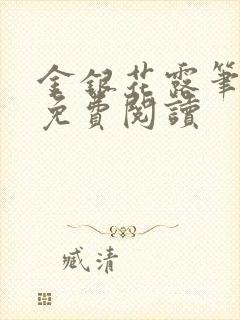 金銀花露筆
免費閱讀
臧清